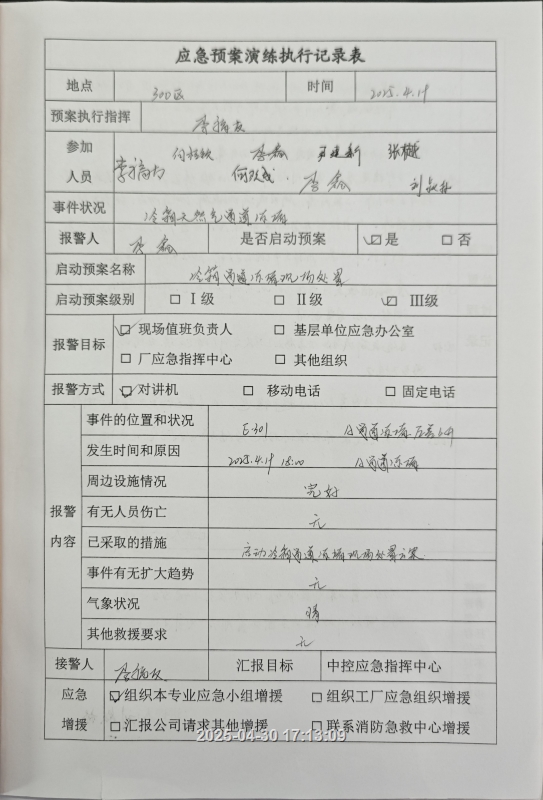 应急预案演练执行记录表
地点 300区 时间 2025.4.19
预案执行指挥
参加
人员 李鑫
事件状况 冷箱天然气通道冻堵
报警人 李鑫 是否启动预案 ☑是 □否
启动预案名称 冷箱通道冻堵现场处置
启动预案级别 □Ⅰ级 □Ⅱ级 ☑Ⅲ级
报警目标 ☑现场值班负责人 □基层单位应急办公室
□厂应急指挥中心 □其他组织
报警方式 ☑对讲机 □移动电话 □固定电话
报警
内容
事件的位置和状况 E-301 A通道冻堵 压差上升
发生时间和原因 2025.4.19 18:00 A通道冻堵
周边设施情况 完好
有无人员伤亡 无
已采取的措施 启动冷箱通道冻堵现场处置方案
事件有无扩大趋势 无
气象状况 晴
其他救援要求 无
接警人 汇报目标 中控应急指挥中心
应急 ☑组织本专业应急小组增援 □组织工厂应急组织增援
增援 □汇报公司请求其他增援 □联系消防急救中心增援
2025-04-30 17:13:09